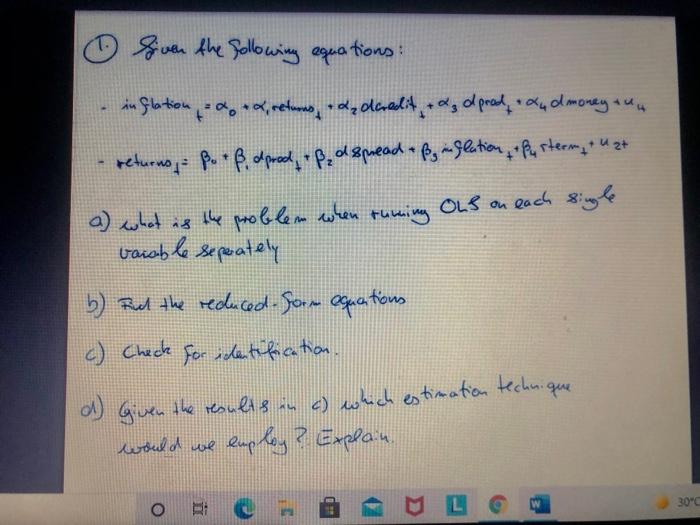 1. Given the following equations:
- inflation_t = α₀ + α₁ returns_t + α₂ dcredit_t + α₃ dprod_t + α₄ dmoney + u
- returns_t = β₀ + β₁ dprod_t + β₂ dspread + β₃ inflation_t + β₄ rterm_t + u₂t
a) what is the problem when running OLS on each single
varable seperately
b) Find the reduced-form equations
c) Check for identification.
d) Given the results in c) which estimation technique
would we employ? Explain.
W
L
30°C